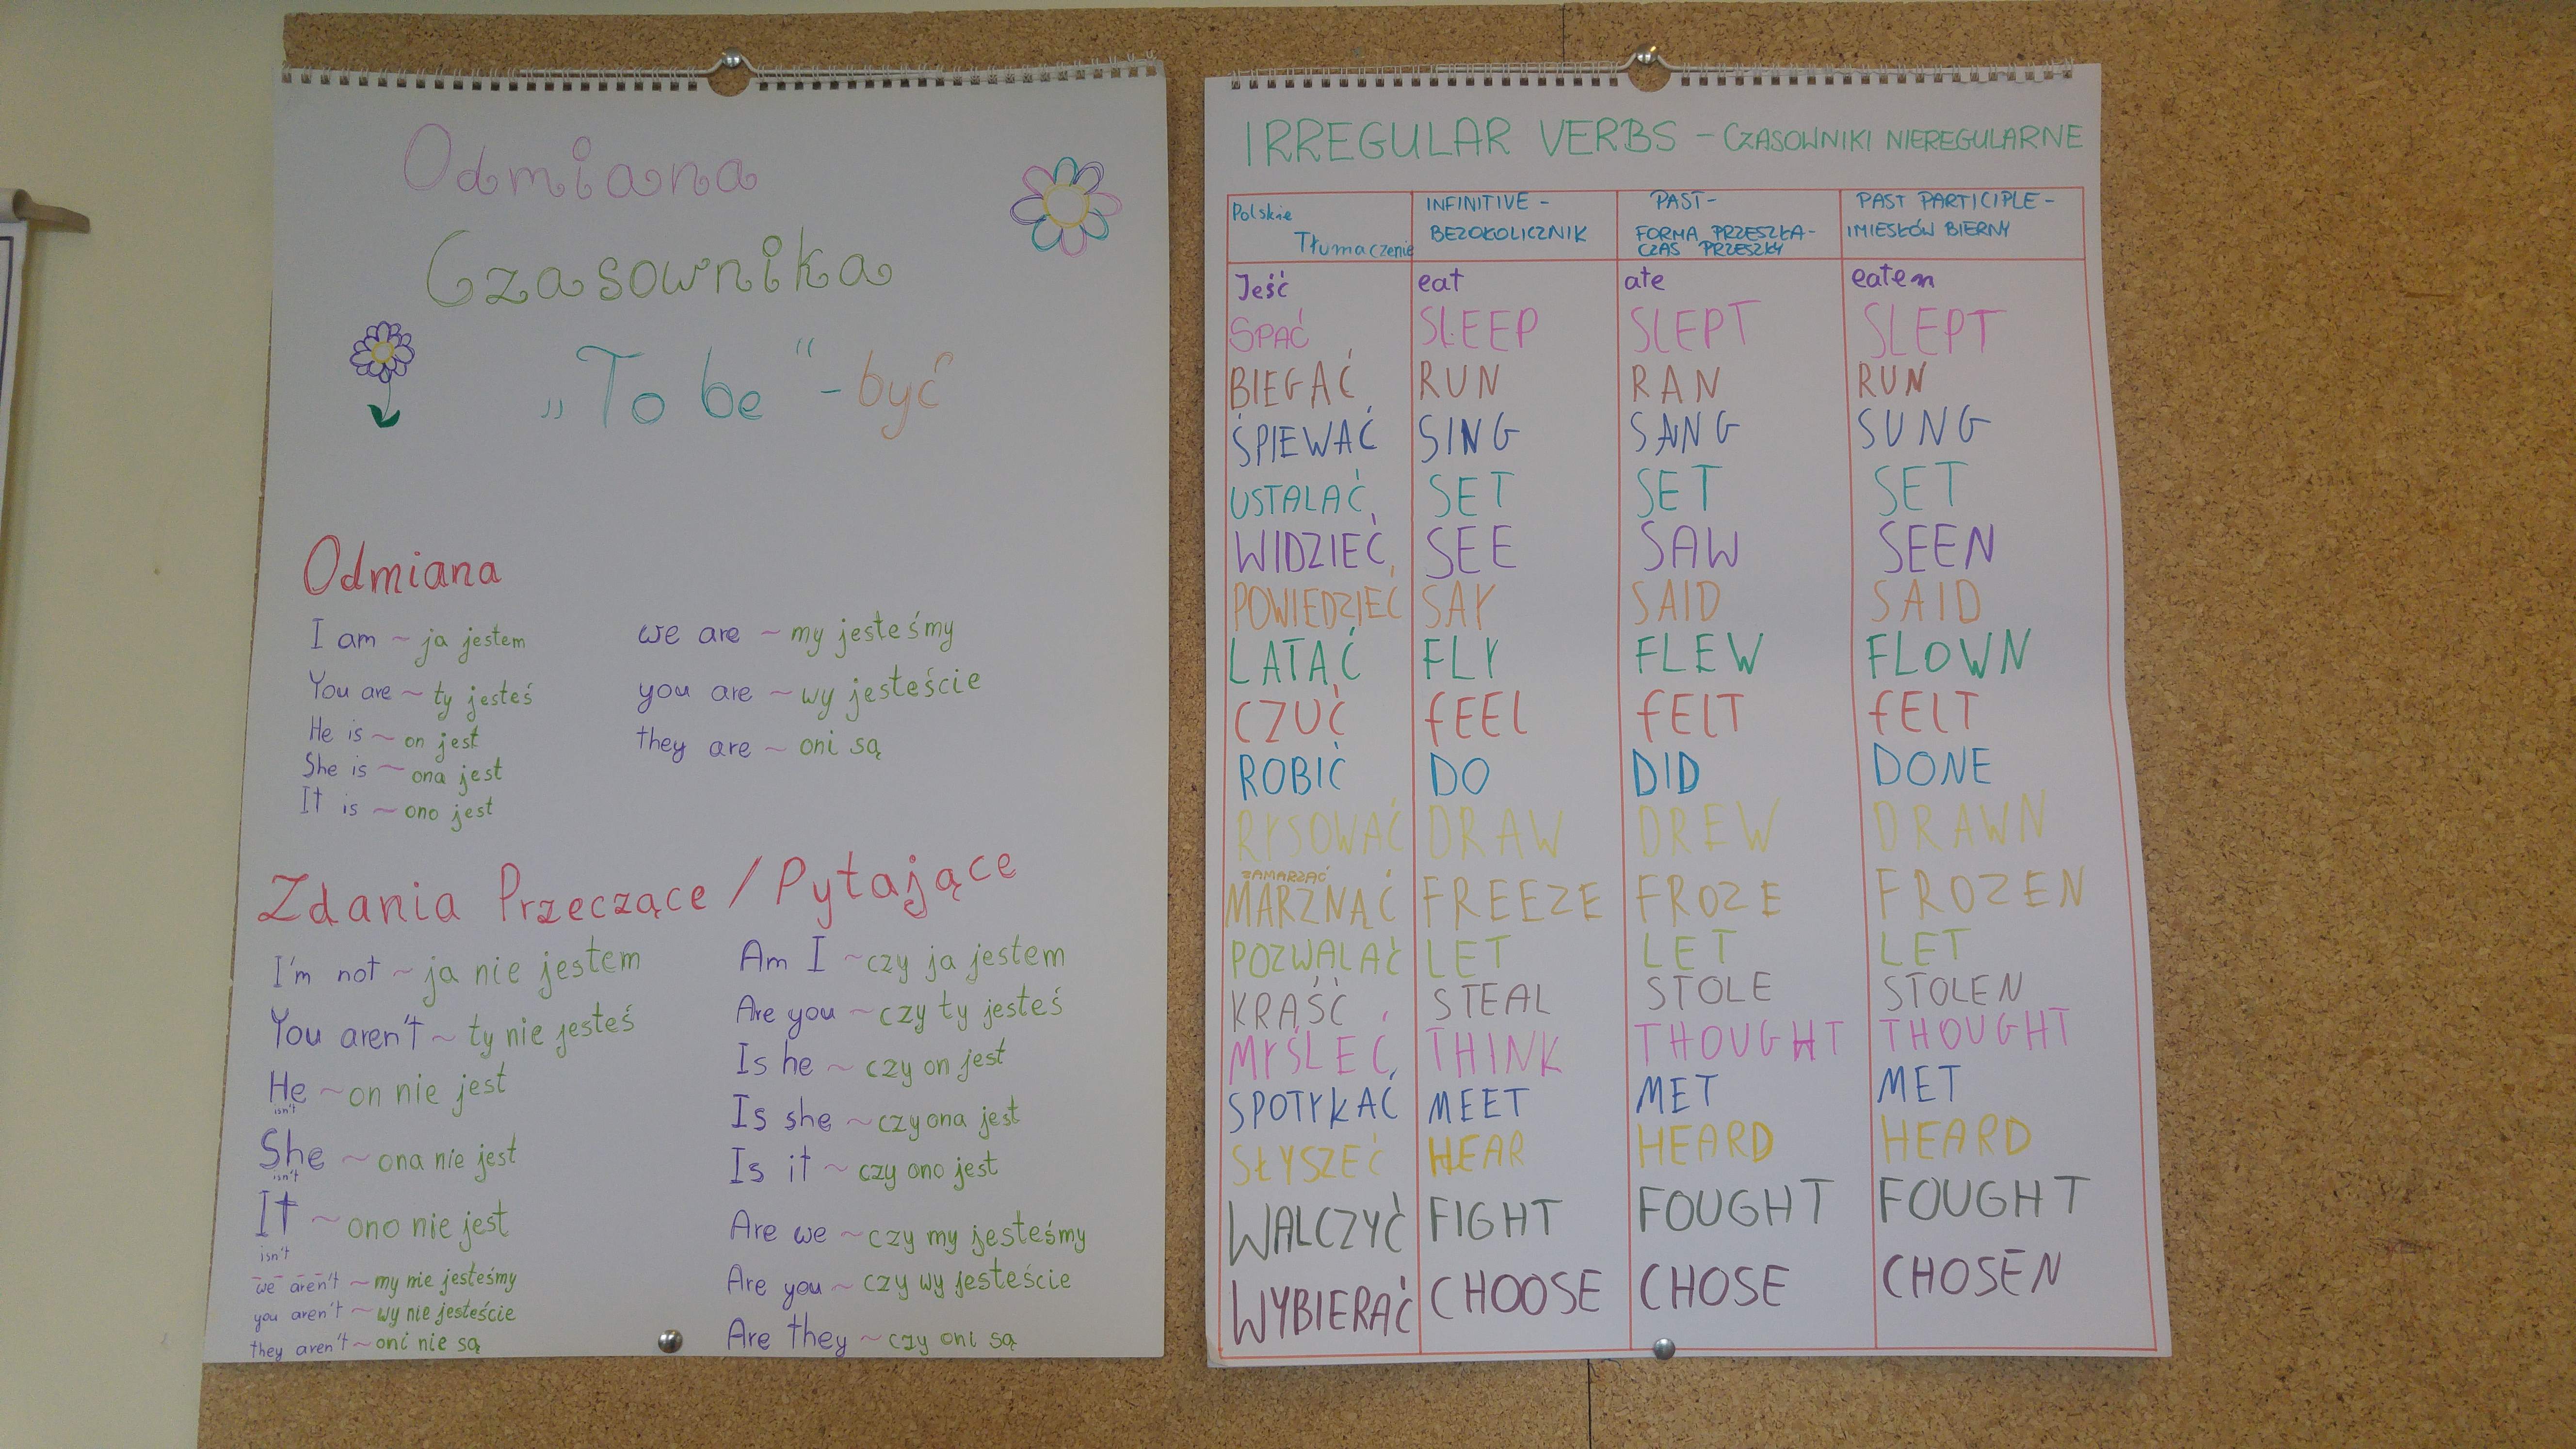 Odmiana
Czasownika
„To be“ - być
Odmiana
I am ~ ja jestem
You are ~ ty jesteś
He is ~ on jest
She is ~ ona jest
It is ~ ono jest
we are ~ my jesteśmy
you are ~ wy jesteście
they are ~ oni są
Zdania Przeczące / Pytające
I'm not ~ ja nie jestem
You aren't ~ ty nie jesteś
He ~ on nie jest
isn't
She ~ ona nie jest
isn't
It ~ ono nie jest
isn't
we aren't ~ my nie jesteśmy
you aren't ~ wy nie jesteście
they aren't ~ oni nie są
Am I ~ czy ja jestem
Are you ~ czy ty jesteś
Is he ~ czy on jest
Is she ~ czy ona jest
Is it ~ czy ono jest
Are we ~ czy my jesteśmy
Are you ~ czy wy jesteście
Are they ~ czy oni są
IRREGULAR VERBS - CZASOWNIKI NIEREGULARNE
Polskie Tłumaczenie INFINITIVE - BEZOKOLICZNIK PAST - FORMA PRZESZŁA - CZAS PRZESZŁY PAST PARTICIPLE - IMIESŁÓW BIERNY
Jeść eat ate eaten
SPAĆ SLEEP SLEPT SLEPT
BIEGAĆ RUN RAN RUN
ŚPIEWAĆ SING SANG SUNG
USTALAĆ SET SET SET
WIDZIEĆ SEE SAW SEEN
POWIEDZIEĆ SAY SAID SAID
LATAĆ FLY FLEW FLOWN
CZUĆ fEEl fElT fElT
ROBIĆ DO DID DONE
RYSOWAĆ DRAW DREW DRAWN
ZAMARZAĆ
MARZNĄĆ FREEZE FROZE FROZEN
POZWALAĆ LET LET LET
KRAŚĆ STEAL STOLE STOLEN
MYŚLEĆ THINK THOUGHT THOUGHT
SPOTYKAĆ MEET MET MET
SŁYSZEĆ HEAR HEARD HEARD
WALCZYĆ FIGHT FOUGHT FOUGHT
WYBIERAĆ CHOOSE CHOSE CHOSEN